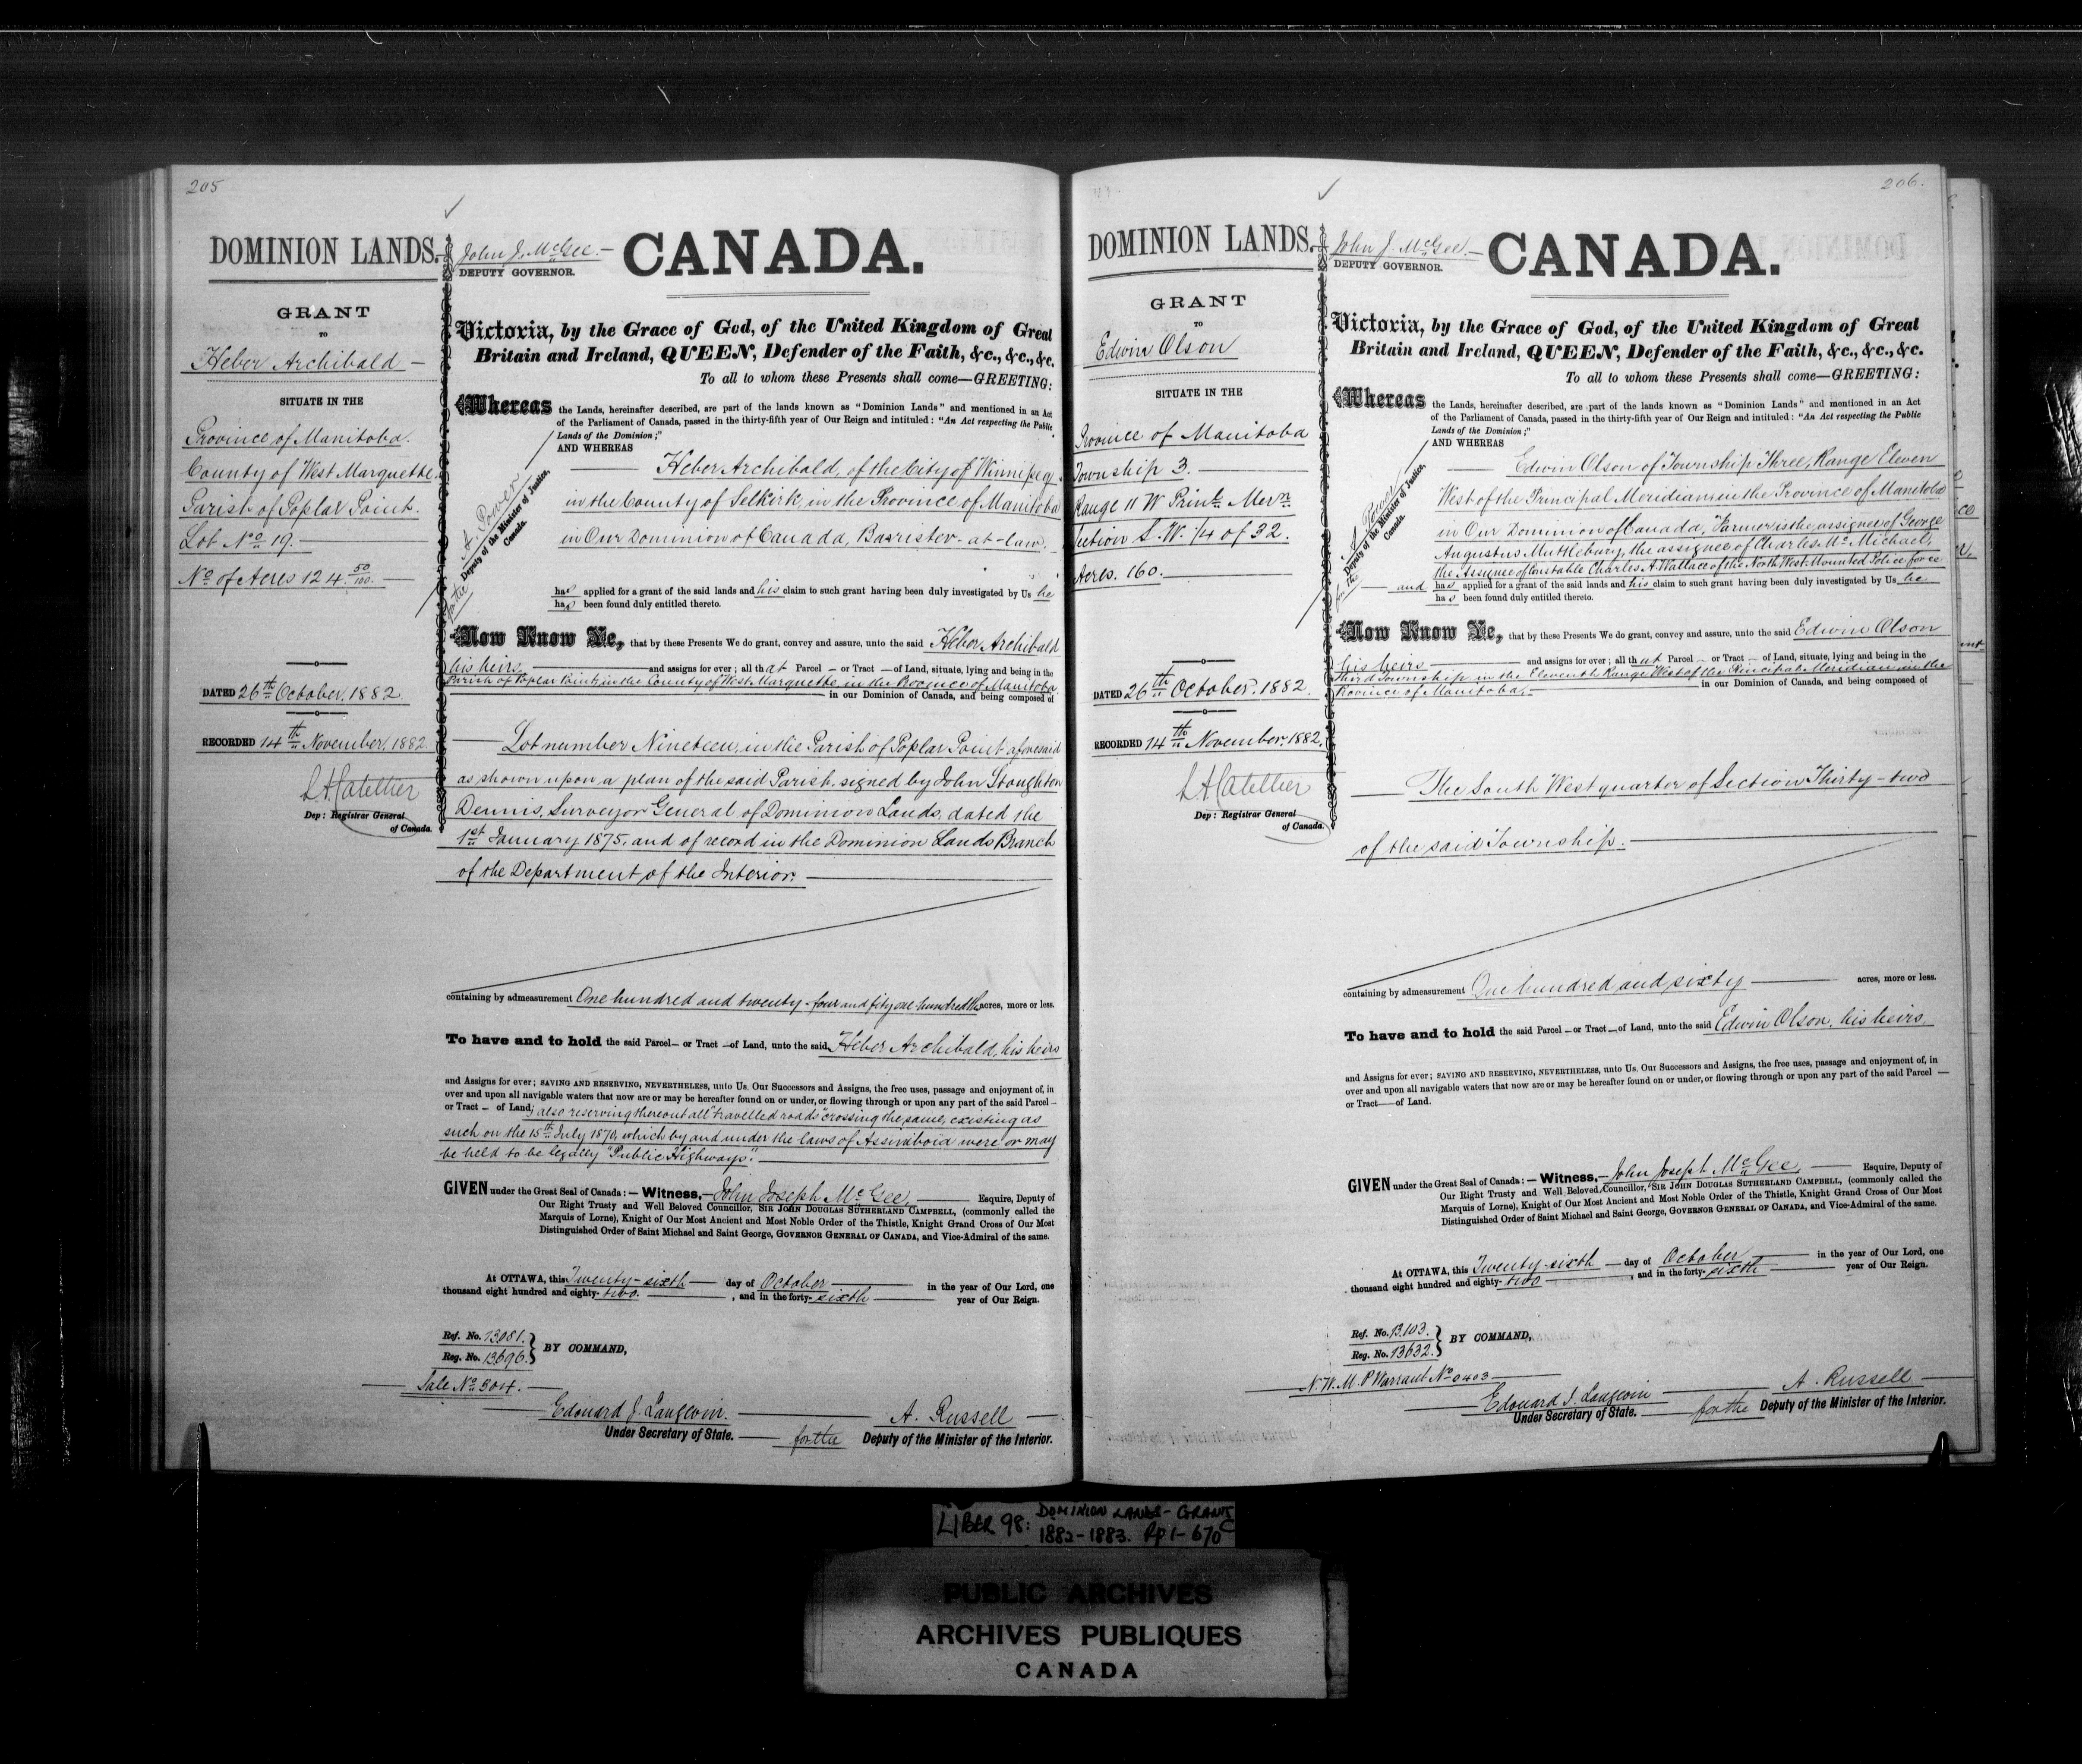 205
DOMINION LANDS.
GRANT
TO
Heber Archibald
SITUATE IN THE
Province of Manitoba.
County of West Marquette.
Parish of Poplar Point.
Lot No 19.
No of Acres 124. 50/100.
DATED 26th October, 1882.
RECORDED 14th November, 1882.
L.A. Catellier
Dep: Registrar General
of Canada.
John J. McGee.
DEPUTY GOVERNOR.
CANADA.
Victoria, by the Grace of God, of the United Kingdom of Great
Britain and Ireland, QUEEN, Defender of the Faith, &c., &c., &c.
To all to whom these Presents shall come—GREETING:
Whereas the Lands, hereinafter described, are part of the lands known as "Dominion Lands" and mentioned in an Act
of the Parliament of Canada, passed in the thirty-fifth year of Our Reign and intituled: "An Act respecting the Public
Lands of the Dominion;"
AND WHEREAS
Heber Archibald, of the City of Winnipeg
in the County of Selkirk, in the Province of Manitoba
in Our Dominion of Canada, Barrister-at-law.
A. Power
for the Deputy of the Minister of Justice,
Canada.
has applied for a grant of the said lands and his claim to such grant having been duly investigated by Us he
has been found duly entitled thereto.
Now Know Ye, that by these Presents We do grant, convey and assure, unto the said Heber Archibald
his heirs and assigns for over; all that Parcel – or Tract – of Land, situate, lying and being in the
Parish of Poplar Point, in the County of West Marquette, in the Province of Manitoba
in our Dominion of Canada, and being composed of
Lot number Nineteen, in the Parish of Poplar Point aforesaid
as shown upon a plan of the said Parish, signed by John Stoughton
Dennis, Surveyor General of Dominion Lands, dated the
1st January 1875, and of record in the Dominion Lands Branch
of the Department of the Interior.
containing by admeasurement One hundred and twenty-four and fifty one-hundredths acres, more or less.
To have and to hold the said Parcel – or Tract – of Land, unto the said Heber Archibald, his heirs
and Assigns for ever; SAVING AND RESERVING, NEVERTHELESS, unto Us. Our Successors and Assigns, the free uses, passage and enjoyment of, in
over and upon all navigable waters that now are or may be hereafter found on or under, or flowing through or upon any part of the said Parcel –
or Tract – of Land; also reserving thereout all "travelled roads" crossing the same, existing as
such on the 15th July 1870, which by and under the laws of Assiniboia were or may
be held to be legally "Public Highways".
GIVEN under the Great Seal of Canada: — Witness,—John Joseph McGee, Esquire, Deputy of
Our Right Trusty and Well Beloved Councillor, SIR JOHN DOUGLAS SUTHERLAND CAMPBELL, (commonly called the
Marquis of Lorne), Knight of Our Most Ancient and Most Noble Order of the Thistle, Knight Grand Cross of Our Most
Distinguished Order of Saint Michael and Saint George, GOVERNOR GENERAL OF CANADA, and Vice-Admiral of the same.
At OTTAWA, this Twenty-sixth day of October in the year of Our Lord, one
thousand eight hundred and eighty-two, and in the forty-sixth year of Our Reign.
Ref. No. 13,081.
Reg. No. 13696.
BY COMMAND,
Sale No 504.
Edouard J. Langevin.
Under Secretary of State.
A. Russell
for the Deputy of the Minister of the Interior.
206.
DOMINION LANDS.
GRANT
TO
Edwin Olson
SITUATE IN THE
Province of Manitoba
Township 3.
Range 11 W Prinl. Mern
Section S.W. 1/4 of 32.
Acres. 160.
DATED 26th October, 1882.
RECORDED 14th November, 1882.
L.A. Catellier
Dep: Registrar General
of Canada.
John J. McGee.
DEPUTY GOVERNOR.
CANADA.
Victoria, by the Grace of God, of the United Kingdom of Great
Britain and Ireland, QUEEN, Defender of the Faith, &c., &c., &c.
To all to whom these Presents shall come—GREETING:
Whereas the Lands, hereinafter described, are part of the lands known as "Dominion Lands" and mentioned in an Act
of the Parliament of Canada, passed in the thirty-fifth year of Our Reign and intituled: "An Act respecting the Public
Lands of the Dominion;"
AND WHEREAS
Edwin Olson of Township Three, Range Eleven
West of the Principal Meridian in the Province of Manitoba
in Our Dominion of Canada, Farmer is the assignee of George
Augustus Muttlebury, the assignee of Charles McMichael,
the Assignee of Constable Charles A. Wallace of the North West Mounted Police force
A. Power
for the Deputy of the Minister of Justice,
Canada.
and has applied for a grant of the said lands and his claim to such grant having been duly investigated by Us he
has been found duly entitled thereto.
Now Know Ye, that by these Presents We do grant, convey and assure, unto the said Edwin Olson
his heirs and assigns for over; all that Parcel – or Tract – of Land, situate, lying and being in the
Third Township in the Eleventh Range West of the Principal Meridian in the
Province of Manitoba, in our Dominion of Canada, and being composed of
The South West quarter of Section Thirty-two
of the said Township.
containing by admeasurement One hundred and sixty acres, more or less.
To have and to hold the said Parcel – or Tract – of Land, unto the said Edwin Olson, his heirs,
and Assigns for ever; SAVING AND RESERVING, NEVERTHELESS, unto Us. Our Successors and Assigns, the free uses, passage and enjoyment of, in
over and upon all navigable waters that now are or may be hereafter found on or under, or flowing through or upon any part of the said Parcel —
or Tract — of Land.
GIVEN under the Great Seal of Canada: — Witness,—John Joseph McGee, Esquire, Deputy of
Our Right Trusty and Well Beloved Councillor, SIR JOHN DOUGLAS SUTHERLAND CAMPBELL, (commonly called the
Marquis of Lorne), Knight of Our Most Ancient and Most Noble Order of the Thistle, Knight Grand Cross of Our Most
Distinguished Order of Saint Michael and Saint George, GOVERNOR GENERAL OF CANADA, and Vice-Admiral of the same.
At OTTAWA, this Twenty-sixth day of October in the year of Our Lord, one
thousand eight hundred and eighty-two, and in the forty-sixth year of Our Reign.
Ref. No. 13,103.
Reg. No. 13632.
BY COMMAND,
N.W.M.P Warrant No 0403
Edouard J. Langevin
Under Secretary of State.
A. Russell
for the Deputy of the Minister of the Interior.
LIBER 98: DOMINION LANDS - GRANTS
1882-1883. Pp 1-670
PUBLIC ARCHIVES
ARCHIVES PUBLIQUES
CANADA